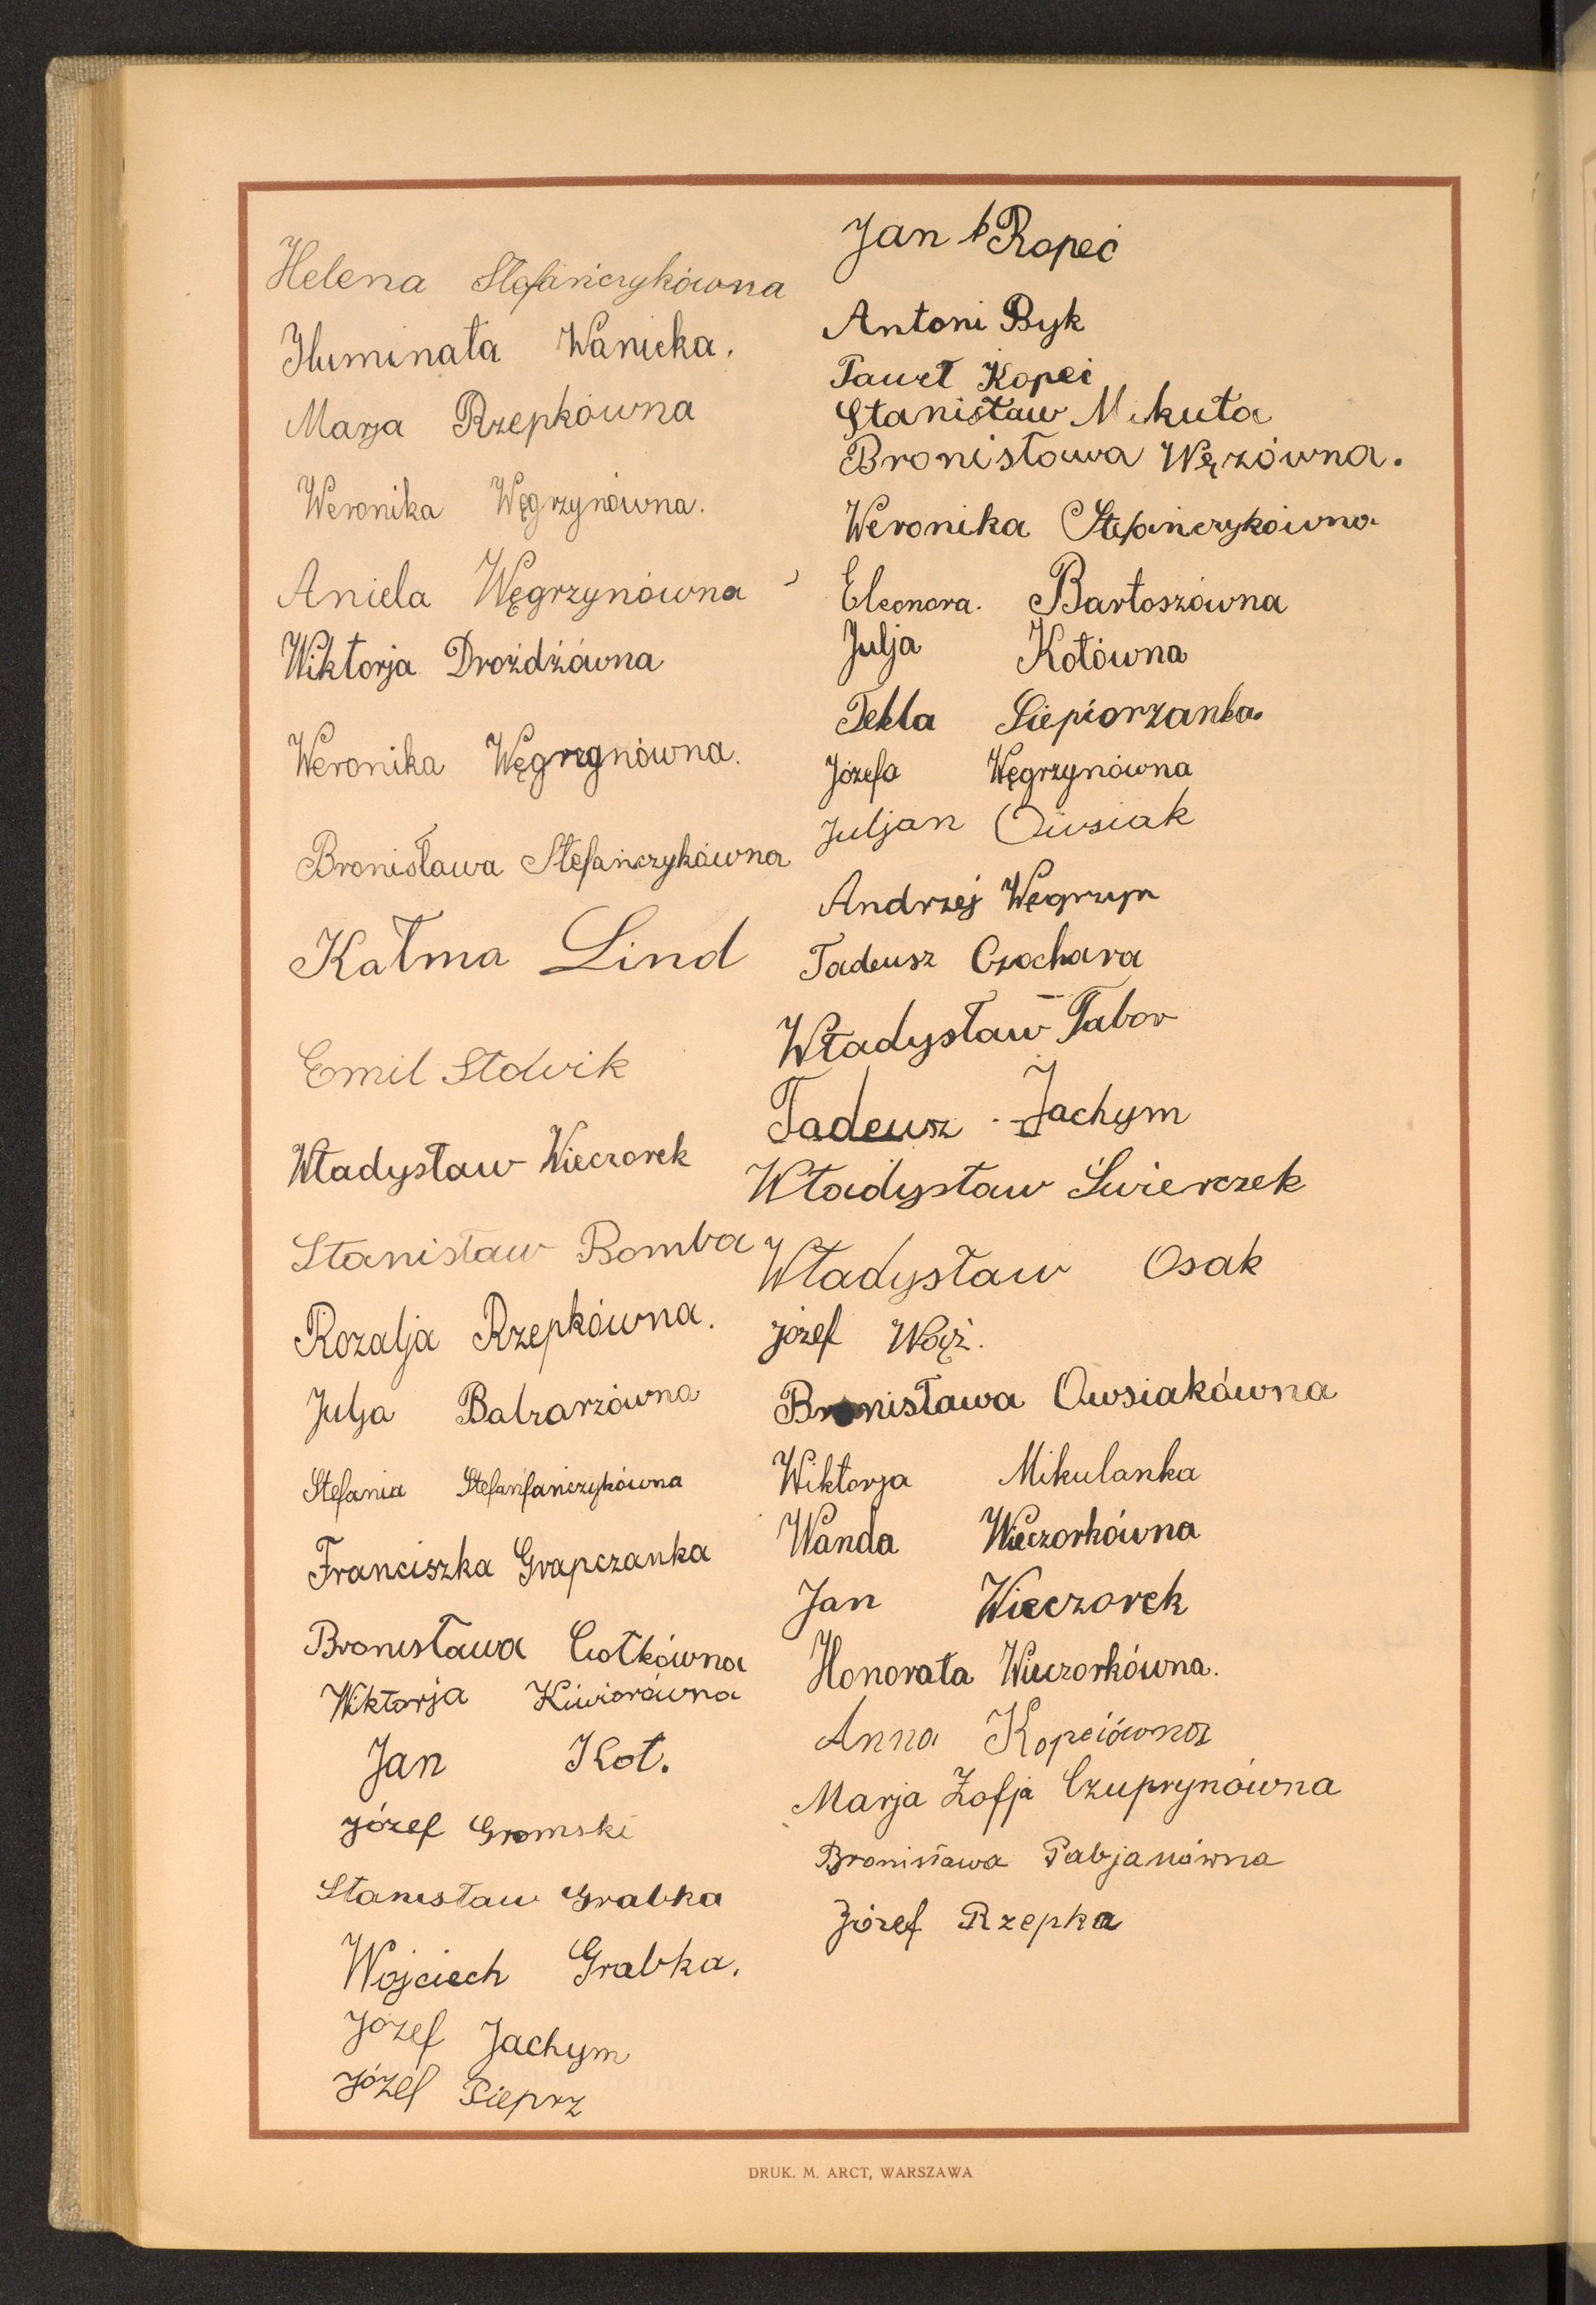 Helena Stefańczykówna
Iluminata Wanicka.
Marja Rzepkówna
Weronika Węgrzynówna.
Aniela Węgrzynówna
Wiktorja Drożdżówna
Weronika Węgrzynówna.
Bronisława Stefańczykówna
Katma Lind
Emil Słowik
Władysław Wieczorek
Stanisław Bomba
Rozalja Rzepkówna.
Julja Balzarzówna
Stefania Stefanfańczykówna
Franciszka Grapczanka
Bronisława Ciołkówna
Wiktorja Kiwiorówna
Jan Kot.
Józef Gromski
Stanisław Grabka
Wojciech Grabka.
Józef Jachym
Józef Pieprz
Jan Kopeć
Antoni Byk
Paweł Kopeć
Stanisław Mikuła
Bronisława Wężówna.
Weronika Stefańczykówna
Eleonora. Bartoszówna
Julja Kotówna
Tekla Siepiorzanka
Józefa Węgrzynówna
Juljan Owsiak
Andrzej Węgrzyn
Tadeusz Czochara
Władysław Tabor
Tadeusz Jachym
Władysław Świerczek
Władysław Osak
Józef Wąż.
Bronisława Owsiakówna
Wiktorja Mikulanka
Wanda Wieczorkówna
Jan Wieczorek
Honorata Wieczorkówna.
Anna Kopciówna
Marja Zofja Czuprynówna
Bronisława Pabjanówna
Józef Rzepka
DRUK. M. ARCT, WARSZAWA